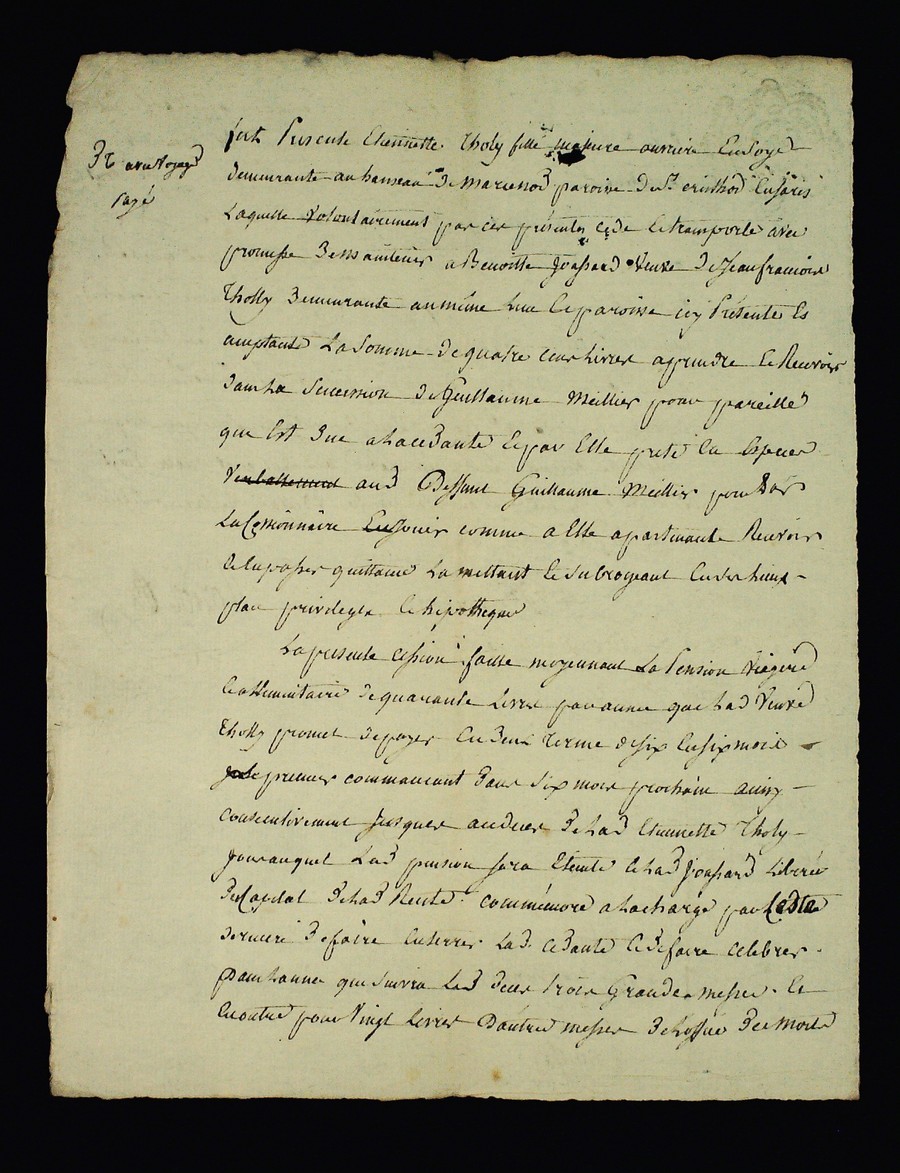 3 t avec voyage
payé
fut Presente Etiennette Tholy fille majeure ouvriere En Soye
demeurante au hameau de Marienod paroisse de St.
Laquelle volontairement par ces présentes cede Et transporte avec
promesse De maintenir a Benoitte Joassard veuve De Jean francoise
Tholly Demeurante au même Lieu Et paroisse icy Présente Et
acceptante La Somme de quatre cent Livres a prendre Et Recevoir
dans La Succession De Guillaume Meillier pour pareille
que Est Due a La cedante Et par Elle preté En Especes
aud Deffunt Guillaume Meillier pour Par
La Cessionnaire En jouir comme a Elle apartenante Recevoir
Et En passer quittance La mettant Et Subrogeant En Ses Lieux
place privilege Et hipotheque
La presente cession faitte moyennant La Pension viagere
Et alimentaire de quarante Livres par année que Lad veuve
Tholly promet de payer En Deux Terme de six En six mois
premier commancant Dans Six mois prochain ainsy
consecutivement jusques au deces De Lad Etiennette Tholy
jour auquel Lad pension sera Eteinte Et Lad Joassard Liberée
Du Capital De Lad Rente. comme encore a La charge par Ladte
derniere De faire Enterrer Lad cedante Et De faire Celebrer
Dans L'année que Suivra Led Deces Trois Grandes messes. Et
En outre pour Vingt Livres D'autres messes De L'office Des Morts